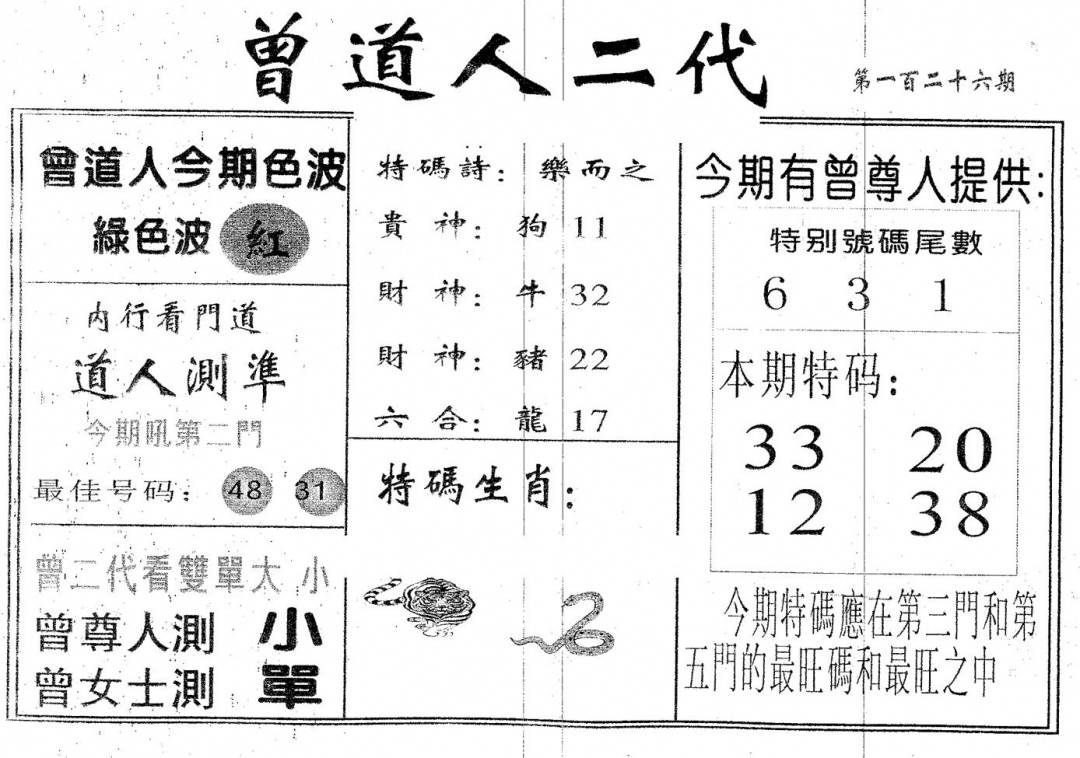 曾道人二代
第一百二十六期
曾道人今期色波
綠色波 紅
内行看門道
道人測準
今期吼第二門
最佳号码： 48 31
曾二代看雙單大 小
曾尊人測 小
曾女士測 單
特碼詩：樂而之
貴神：狗 11
財神：牛 32
財神：豬 22
六合：龍 17
特碼生肖：
今期有曾尊人提供：
特别號碼尾數
6 3 1
本期特码：
33 20
12 38
今期特碼應在第三門和第
五門的最旺碼和最旺之中